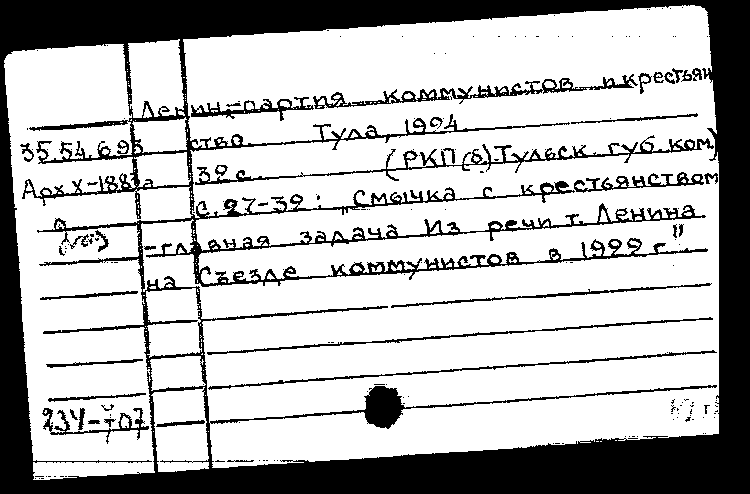 Ленин,-партия коммунистов и крестьян
35.54.693 ство. Тула, 1924.
Арх.X-1883а 32 с. (РКП(б).Тульск. губ. ком)
с. 27-32: „Смычка с крестьянством
-главная задача Из речи т. Ленина
на Съезде коммунистов в 1922 г".
234-